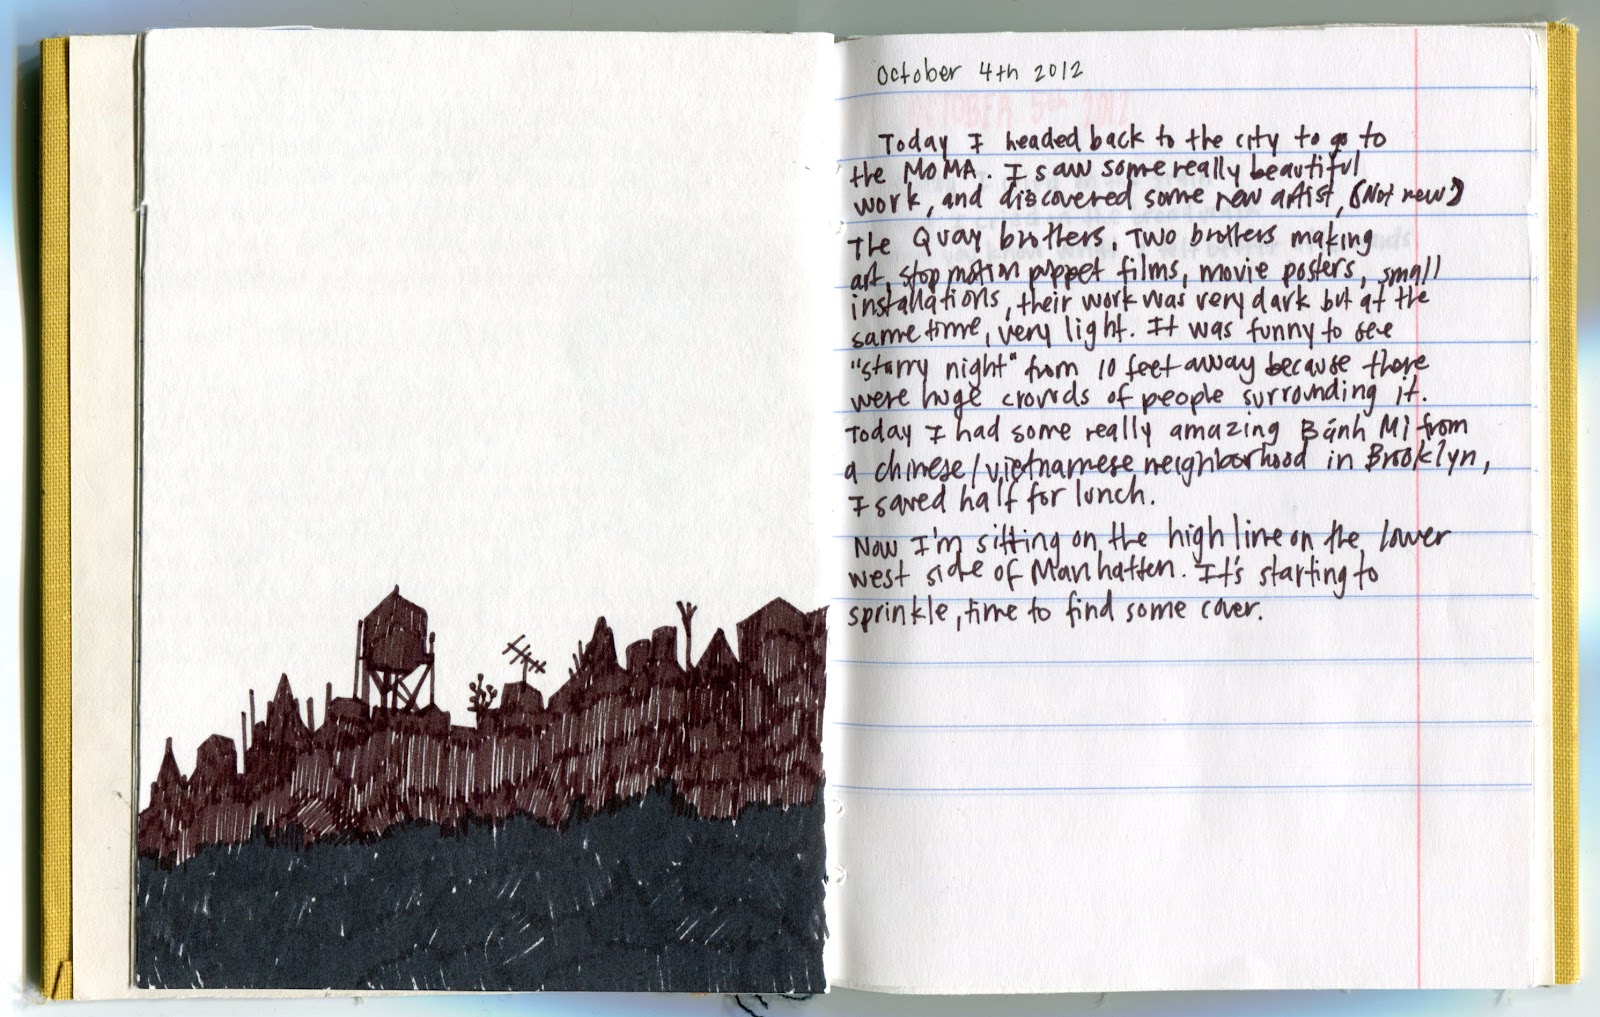 October 4th 2012
OCTOBER 5th 2012
Today I headed back to the city to go to
the MOMA. I saw some really beautiful
work, and discovered some new artist, (Not new)
The Quay brothers. Two brothers making
art, stop motion puppet films, movie posters, small
installations, their work was very dark but at the
same time, very light. It was funny to see
"starry night" from 10 feet away because there
were huge crowds of people surrounding it.
Today I had some really amazing Bánh Mì from
a chinese/vietnamese neighborhood in Brooklyn,
I saved half for lunch.
Now I'm sitting on the high line on the lower
west side of Manhatten. It's starting to
sprinkle, time to find some cover.